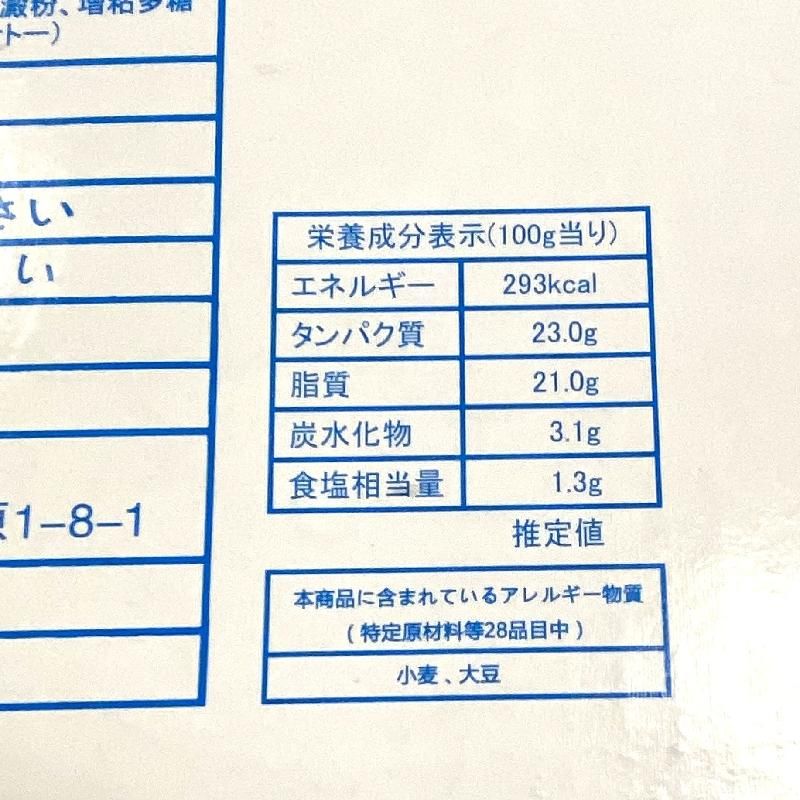 澱粉、増粘多糖
トー)
さい
い
1-8-1
栄養成分表示(100g当り)
エネルギー 293kcal
タンパク質 23.0g
脂質 21.0g
炭水化物 3.1g
食塩相当量 1.3g
推定値
本商品に含まれているアレルギー物質
(特定原材料等28品目中)
小麦、大豆